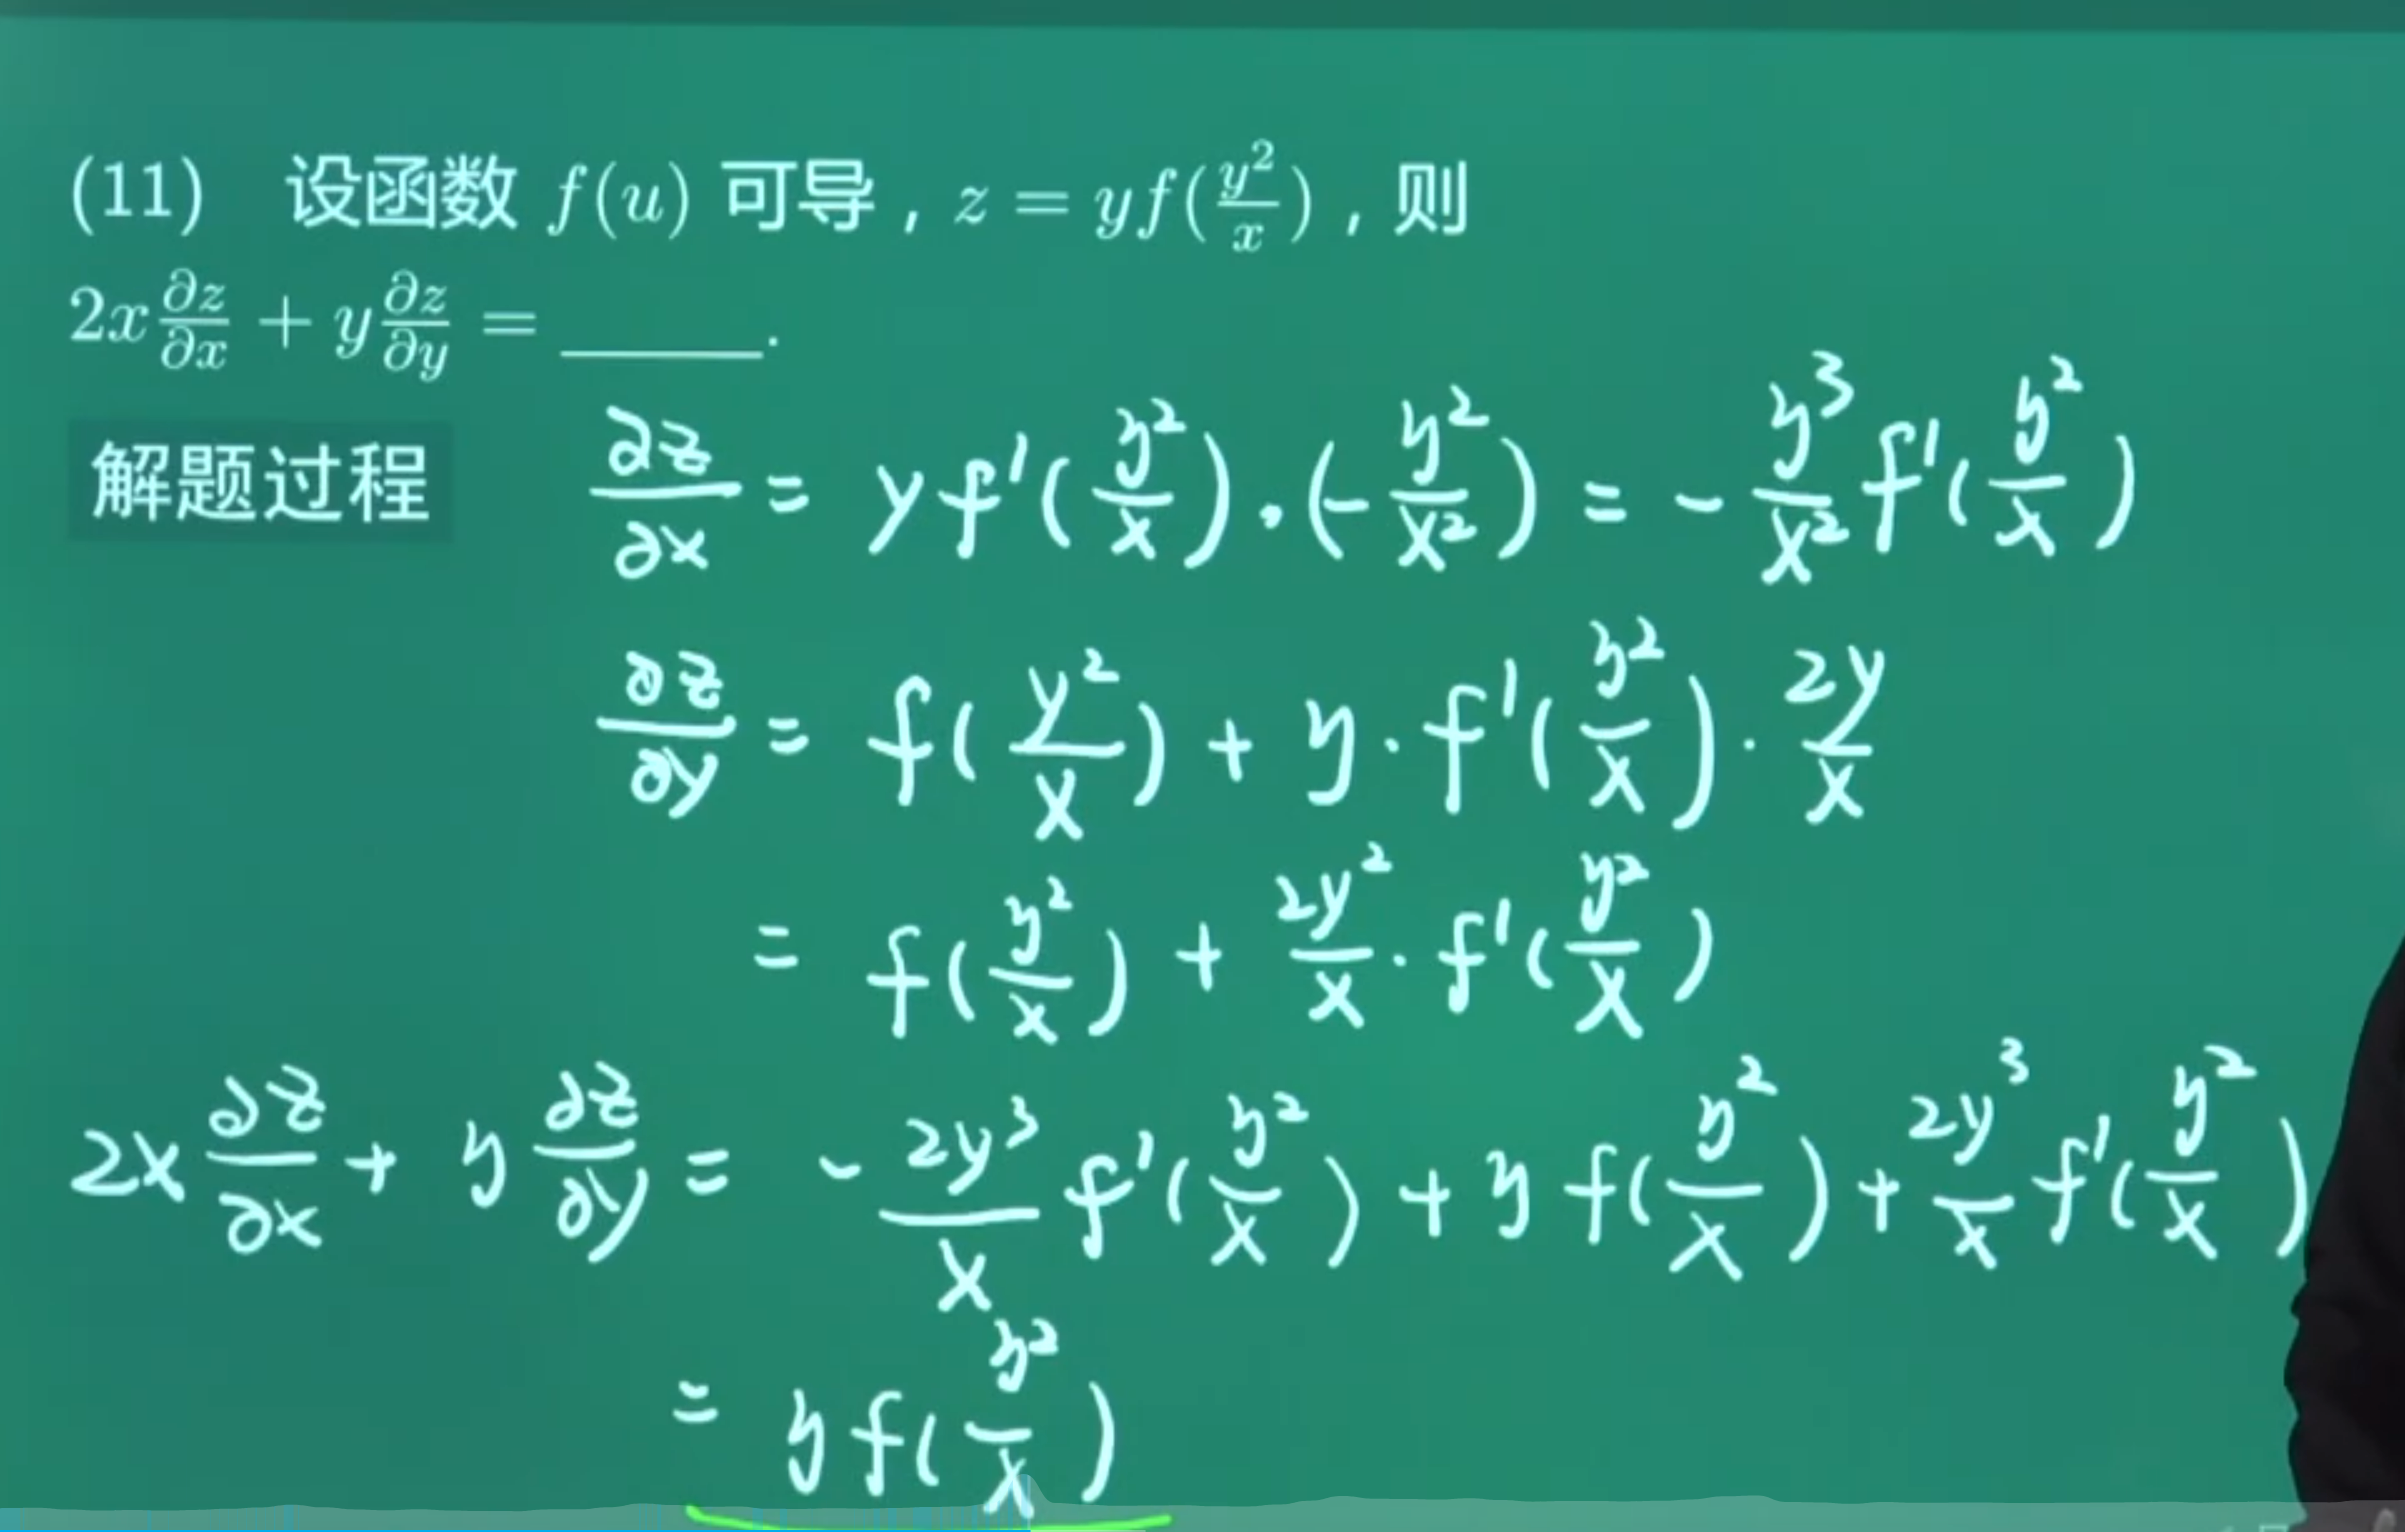 (11) 设函数 f(u) 可导, z = yf(y²/x), 则
2x ∂z/∂x + y ∂z/∂y = ______.
解题过程
∂z/∂x = yf'(y²/x)·(-y²/x²) = -y³/x² f'(y²/x)
∂z/∂y = f(y²/x) + y·f'(y²/x)·2y/x
= f(y²/x) + 2y²/x·f'(y²/x)
2x ∂z/∂x + y ∂z/∂y = -2y³/x f'(y²/x) + y f(y²/x) + 2y³/x f'(y²/x)
= y f(y²/x)